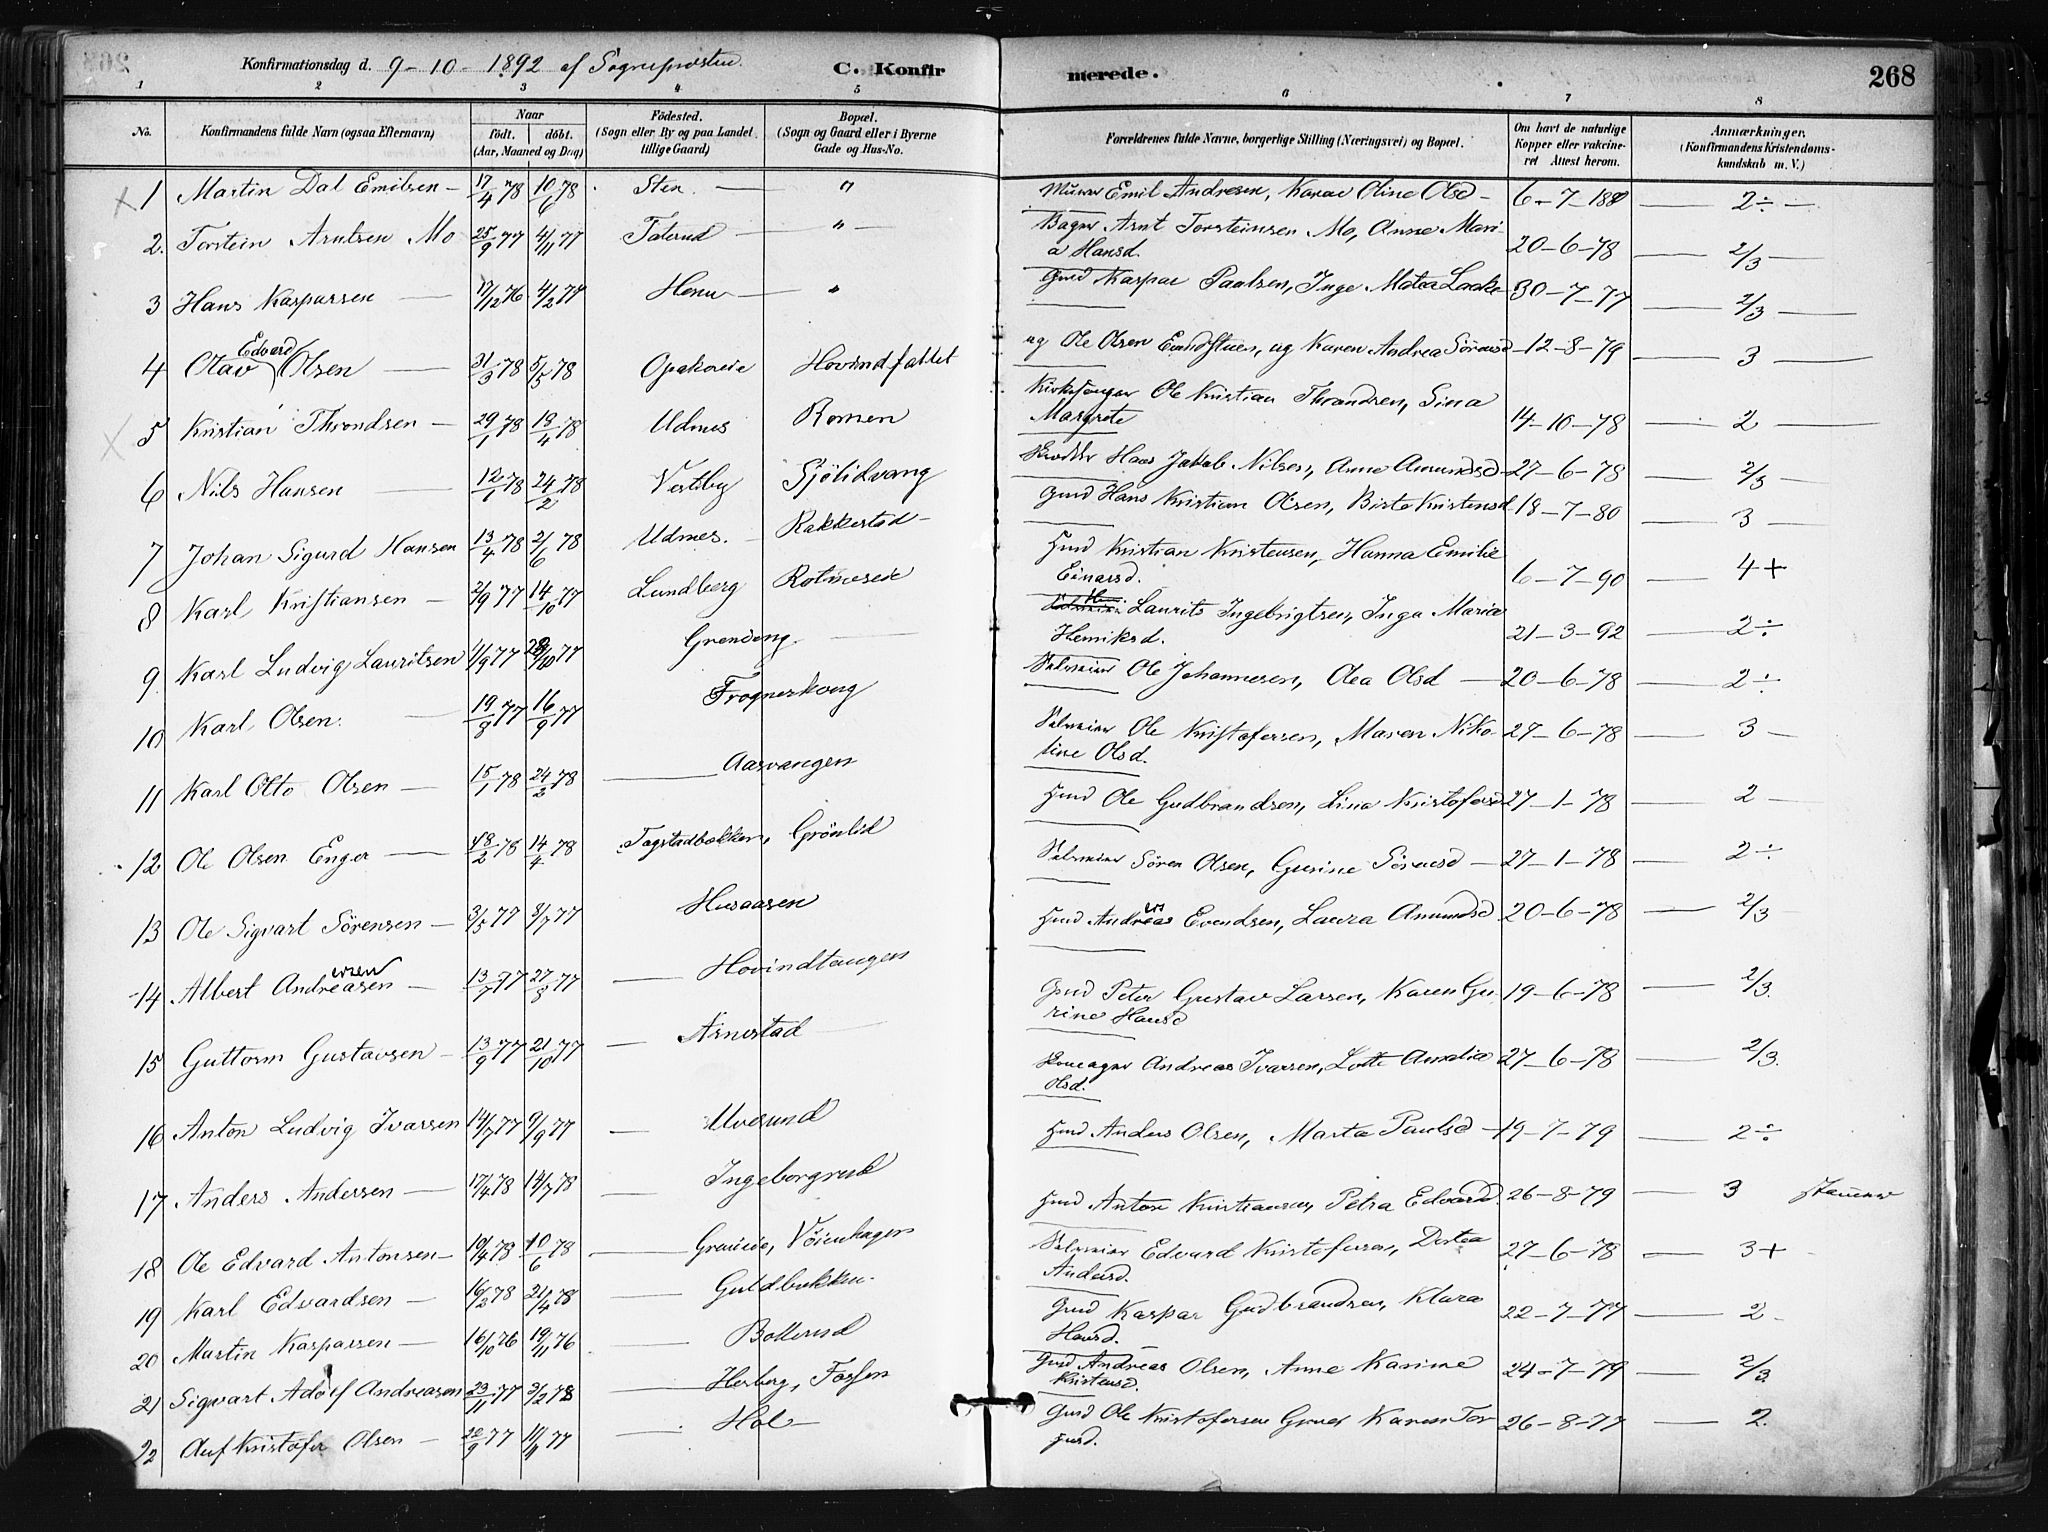 Konfirmationsdag d. 9-10-1892 af Sognepresten. C. Konfirmerede. 268
1 2 3 4 5 6 7 8
No. Konfirmandens fulde Navn (ogsaa Efternavn) Naar födt. döbt. (Aar, Maaned og Dag) Födested. (Sogn eller By og paa Landet tillige Gaard) Bopæl. (Sogn og Gaard eller i Byerne Gade og Hus-No. Forældrenes fulde Navne, borgerlige Stilling (Næringsvei) og Bopæl. Om havt de naturlige Kopper eller vaccineret Attest herom. Anmærkninger. (Konfirmandens Kristendomskundskab m. V.)
1 Martin Dal Emilsen 17/4 78 10/6 78 Sten " Murer Emil Andresen, Karae Oline Olsd 6-7-188 2÷
2. Torstein Arntsen Mo 25/9 77 4/11 77 Taterud " Bager Arnt Torsteinsen Mo, Anne Maria Hansd. 20-6-78 2/3
3 Hans Kaspersen 17/12 76 4/2 77 Henu " Gmd Kaspar Paulsen, Inge Matea 30-7-77 2/3
4 Olav Edvard Olsen 31/3 78 5/5 78 Opakereie Hovindfaltet ug Ole Olsen, ug Karen Andrea Sörensd 12-8-79 3
5 Kristian Throndsen 29/1 78 13/4 78 Udnes Romen Kirkesanger Ole Kristian Throndsen, Sina Margrete 14-10-78 2
6 Nils Hansen 12/1 78 24/2 78 Vestby Sjölidvang Skrædder Hans Jakob Nilsen, Anne Amundsd 27-6-78 2/3
7 Johan Sigurd Hansen 13/4 78 2/6 78 Udnes. Rakkestad Gmd Hans Kristian Olsen, Birte Kristensd 18-7-80 3
8 Karl Kristiansen 2/9 77 14/10 77 Lundberg Rotneseie Hmd Kristian Kristensen, Hanna Emilie Einarsd. 6-7-90 4+
9 Karl Ludvig Lauritsen 11/9 77 28/10 77 Grendeng. Laurits Ingebrigtsen, Inga Maria Henriksd. 21-3-92 2÷
10 Karl Olsen. 19/8 77 16/9 77 Frognerkveng Selveeier Ole Johannesen, Olea Olsd 20-6-78 2÷
11 Karl Otto Olsen 15/1 78 24/2 78 Aasvangen Selveeier Ole Kristofersen, Maren Nikoline Olsd. 27-6-78 3
12 Ole Olsen Enger 18/2 78 14/4 78 Togstadbakken, Grönlid Hmd Ole Gudbrandsen, Lina Kristofersd 27-1-78 2
13 Ole Sigvart Sörensen 3/5 77 8/7 77 Husaasen Selveeier Sören Olsen, Gurine Sörensd 27-1-78 2÷
14 Albert Andreasen ersen 13/7 77 27/8 77 Hovindtangen Hmd Andreas ers Evendsen, Laura Amundsd 20-6-78 2/3
15 Guttorm Gustavsen 13/9 77 21/10 77 Arnestad Gmd Peter Gustav Larsen, Karen Gurine Hansd 19-6-78 2/3.
16 Anton Ludvig Ivarsen 14/7 77 9/9 77 Ulverund Skomager Andreas Ivarsen, Lotte Amalia Olsd. 27-6-78 2/3.
17 Anders Andersen 17/4 78 14/7 78 Ingeborgrud Hmd Anders Olsen, Marta Paulsd 19-7-79 2÷
18 Ole Edvard Antonsen 19/4 78 10/6 78 Greneeie, Vöienhagen Hmd Anton Kristiansen, Petra Edvards 26-8-79 3 stammer
19 Karl Edvardsen 16/2 78 21/4 78 Guldbakken. Selveeier Edvard Kristofersen, Dortea Andersd. 27-6-78 3+
20 Martin Kaspersen 16/10 76 19/11 76 Bollerud Gmd Kaspar Gudbrandsen, Klara Hansd. 22-7-77 2
21 Sigvart Adolf Andreasen 23/11 77 3/2 78 Herberg, Fossen Gmd Andreas Olsen, Anne Karine Kristensd. 24-7-79 2/3.
22 Kristofer Olsen 20/9 77 11/11 77 Hol Gmd Ole Kristofersen, Karen Torgusd. 26-8-77 2.